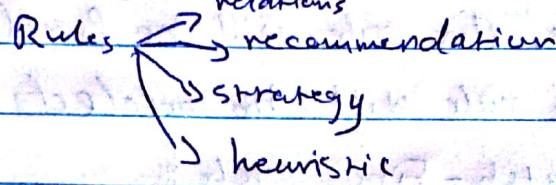 relations
Rules recommendation
strategy
heuristic